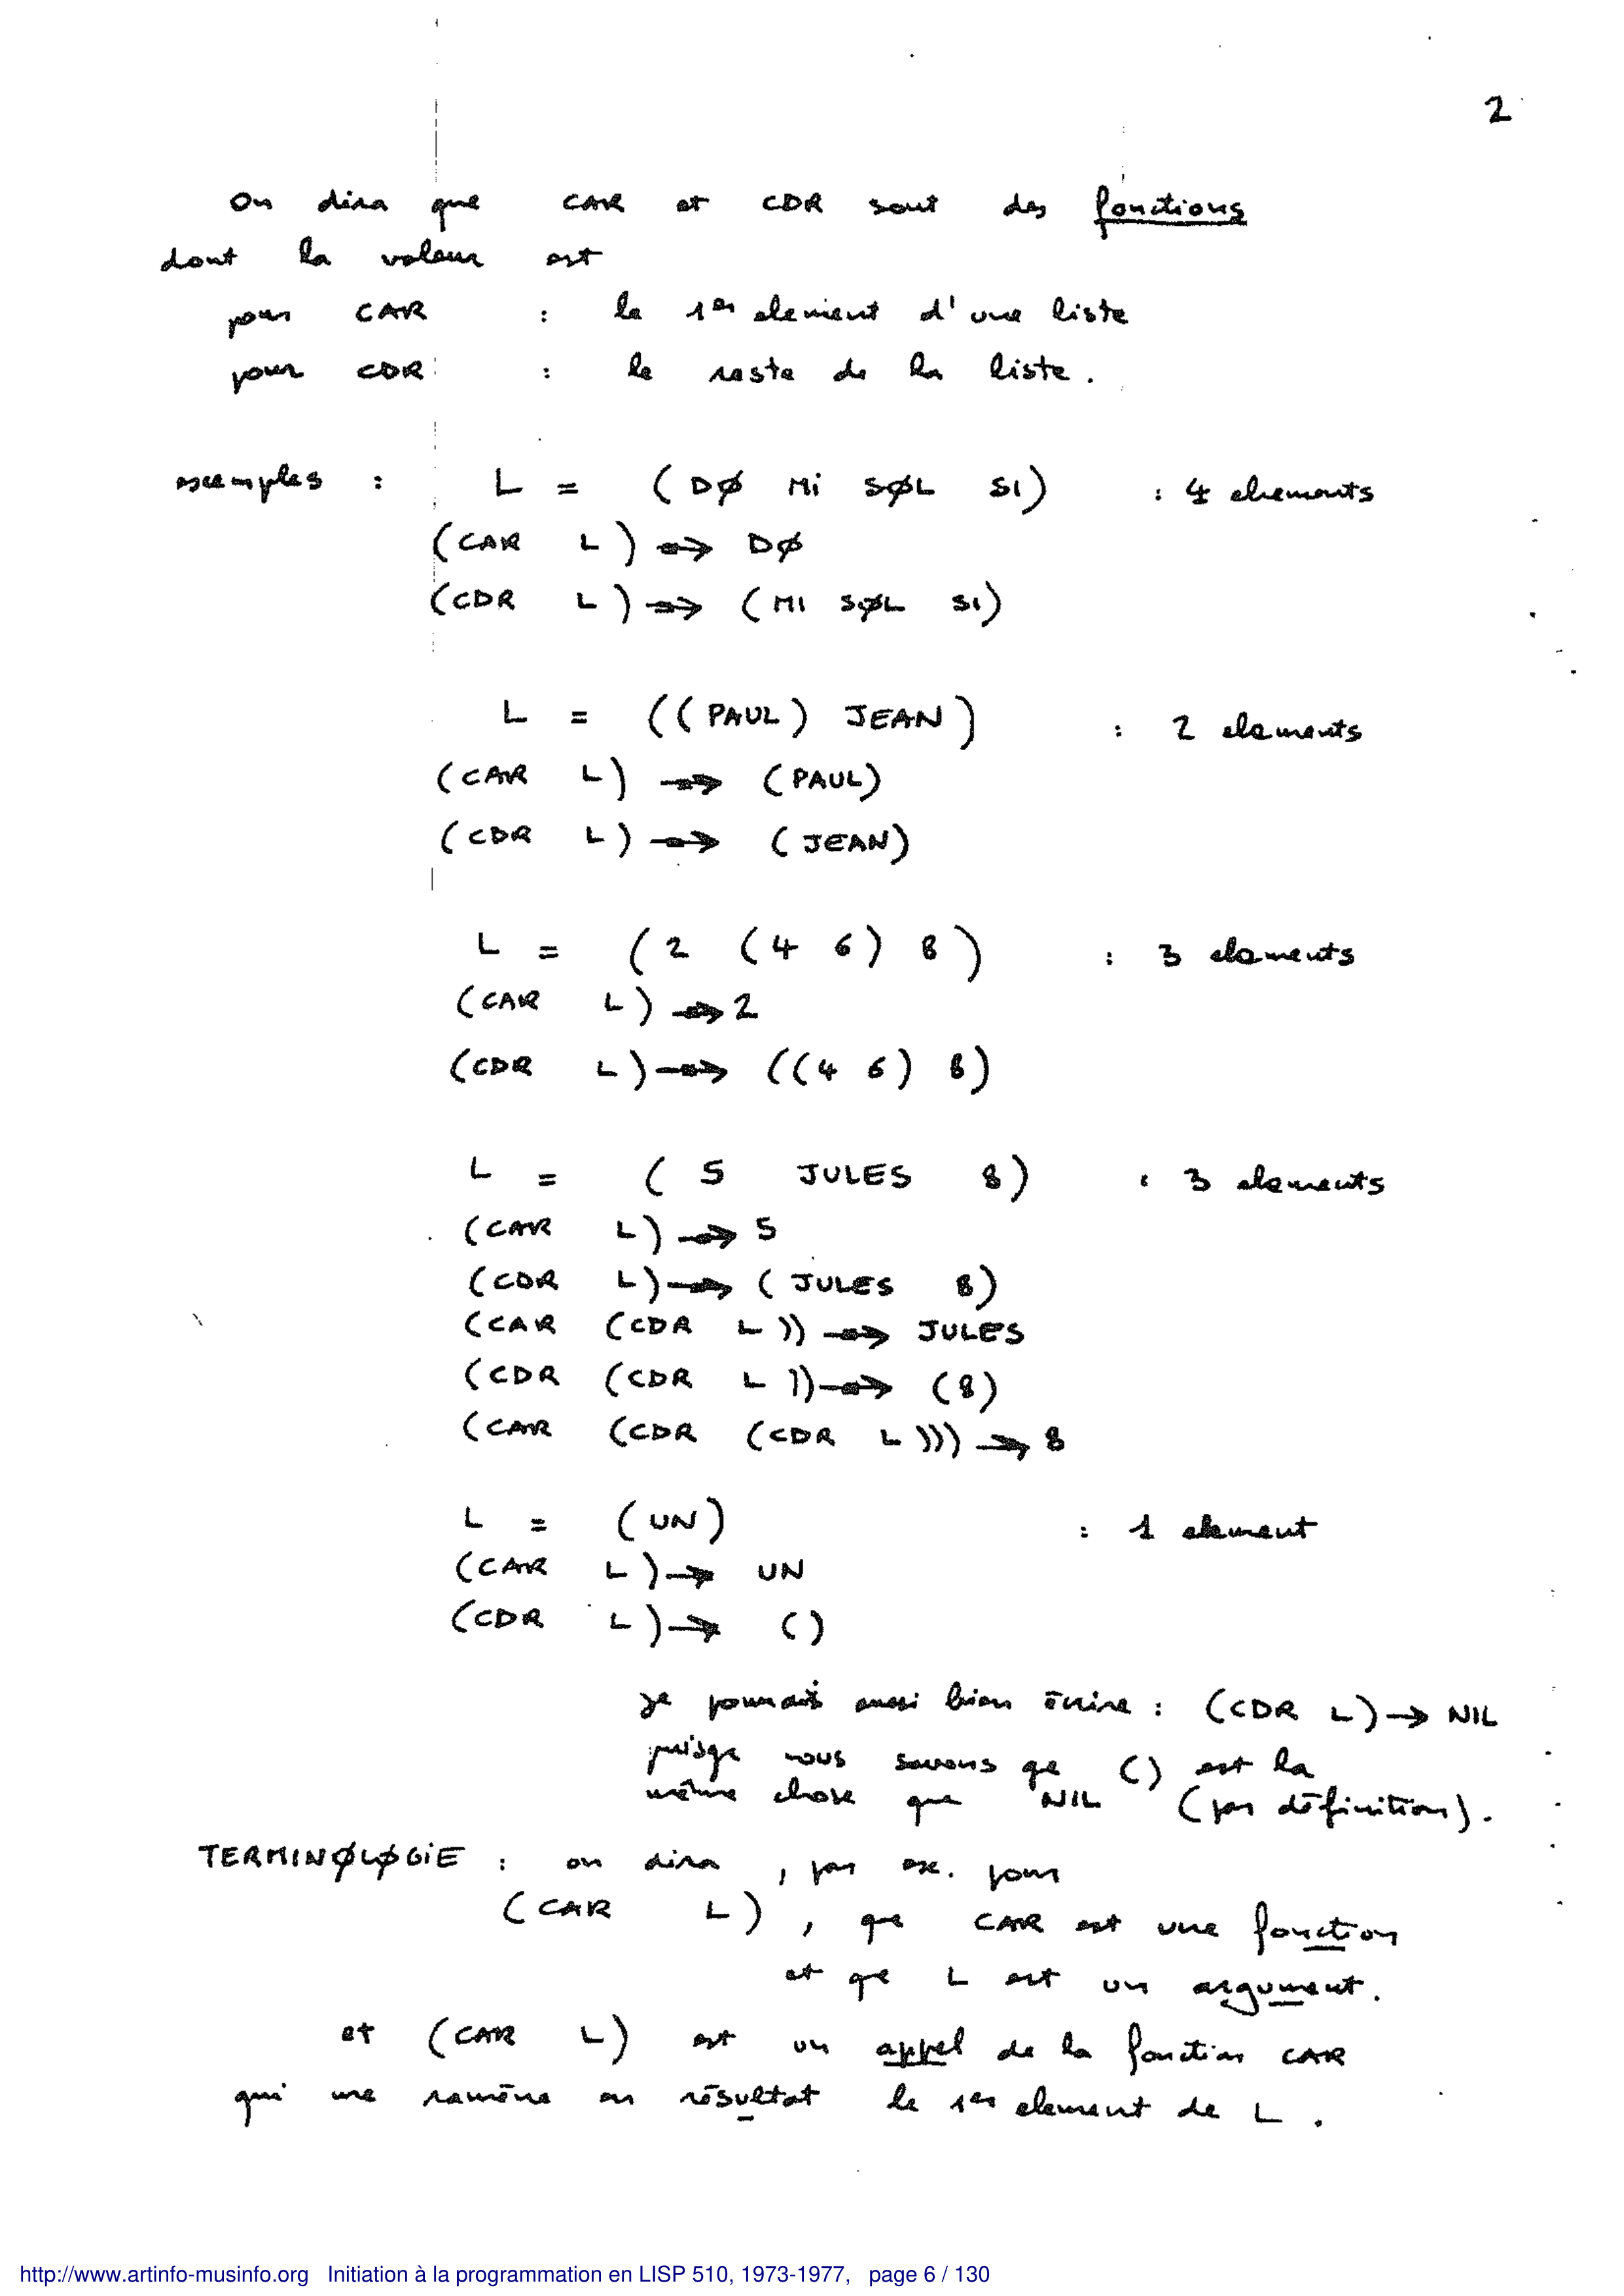 2
On dira que CAR et CDR sont des fonctions
dont la valeur est
pour CAR : le 1er element d'une liste
pour CDR : le reste de la liste.
exemples : L = (DØ Mi SØL SI) : 4 elements
(CAR L) → DØ
(CDR L) → (MI SØL SI)
L = ((PAUL) JEAN) : 2 elements
(CAR L) → (PAUL)
(CDR L) → (JEAN)
L = (2 (4 6) 8) : 3 elements
(CAR L) → 2
(CDR L) → ((4 6) 8)
L = (5 JULES 8) : 3 elements
(CAR L) → 5
(CDR L) → (JULES 8)
(CAR (CDR L)) → JULES
(CDR (CDR L)) → (8)
(CAR (CDR (CDR L))) → 8
L = (UN) : 1 element
(CAR L) → UN
(CDR L) → ()
je pourrais aussi bien écrire : (CDR L) → NIL
puisqe nous savons qe () est la
même chose que NIL (par définition).
TERMINØLØGiE : on dira , par ex. pour
(CAR L) , qe CAR est une fonction
et qe L est un argument.
et (CAR L) est un appel de la fonction CAR
qui me ramène en résultat le 1er element de L .
http://www.artinfo-musinfo.org Initiation à la programmation en LISP 510, 1973-1977, page 6 / 130